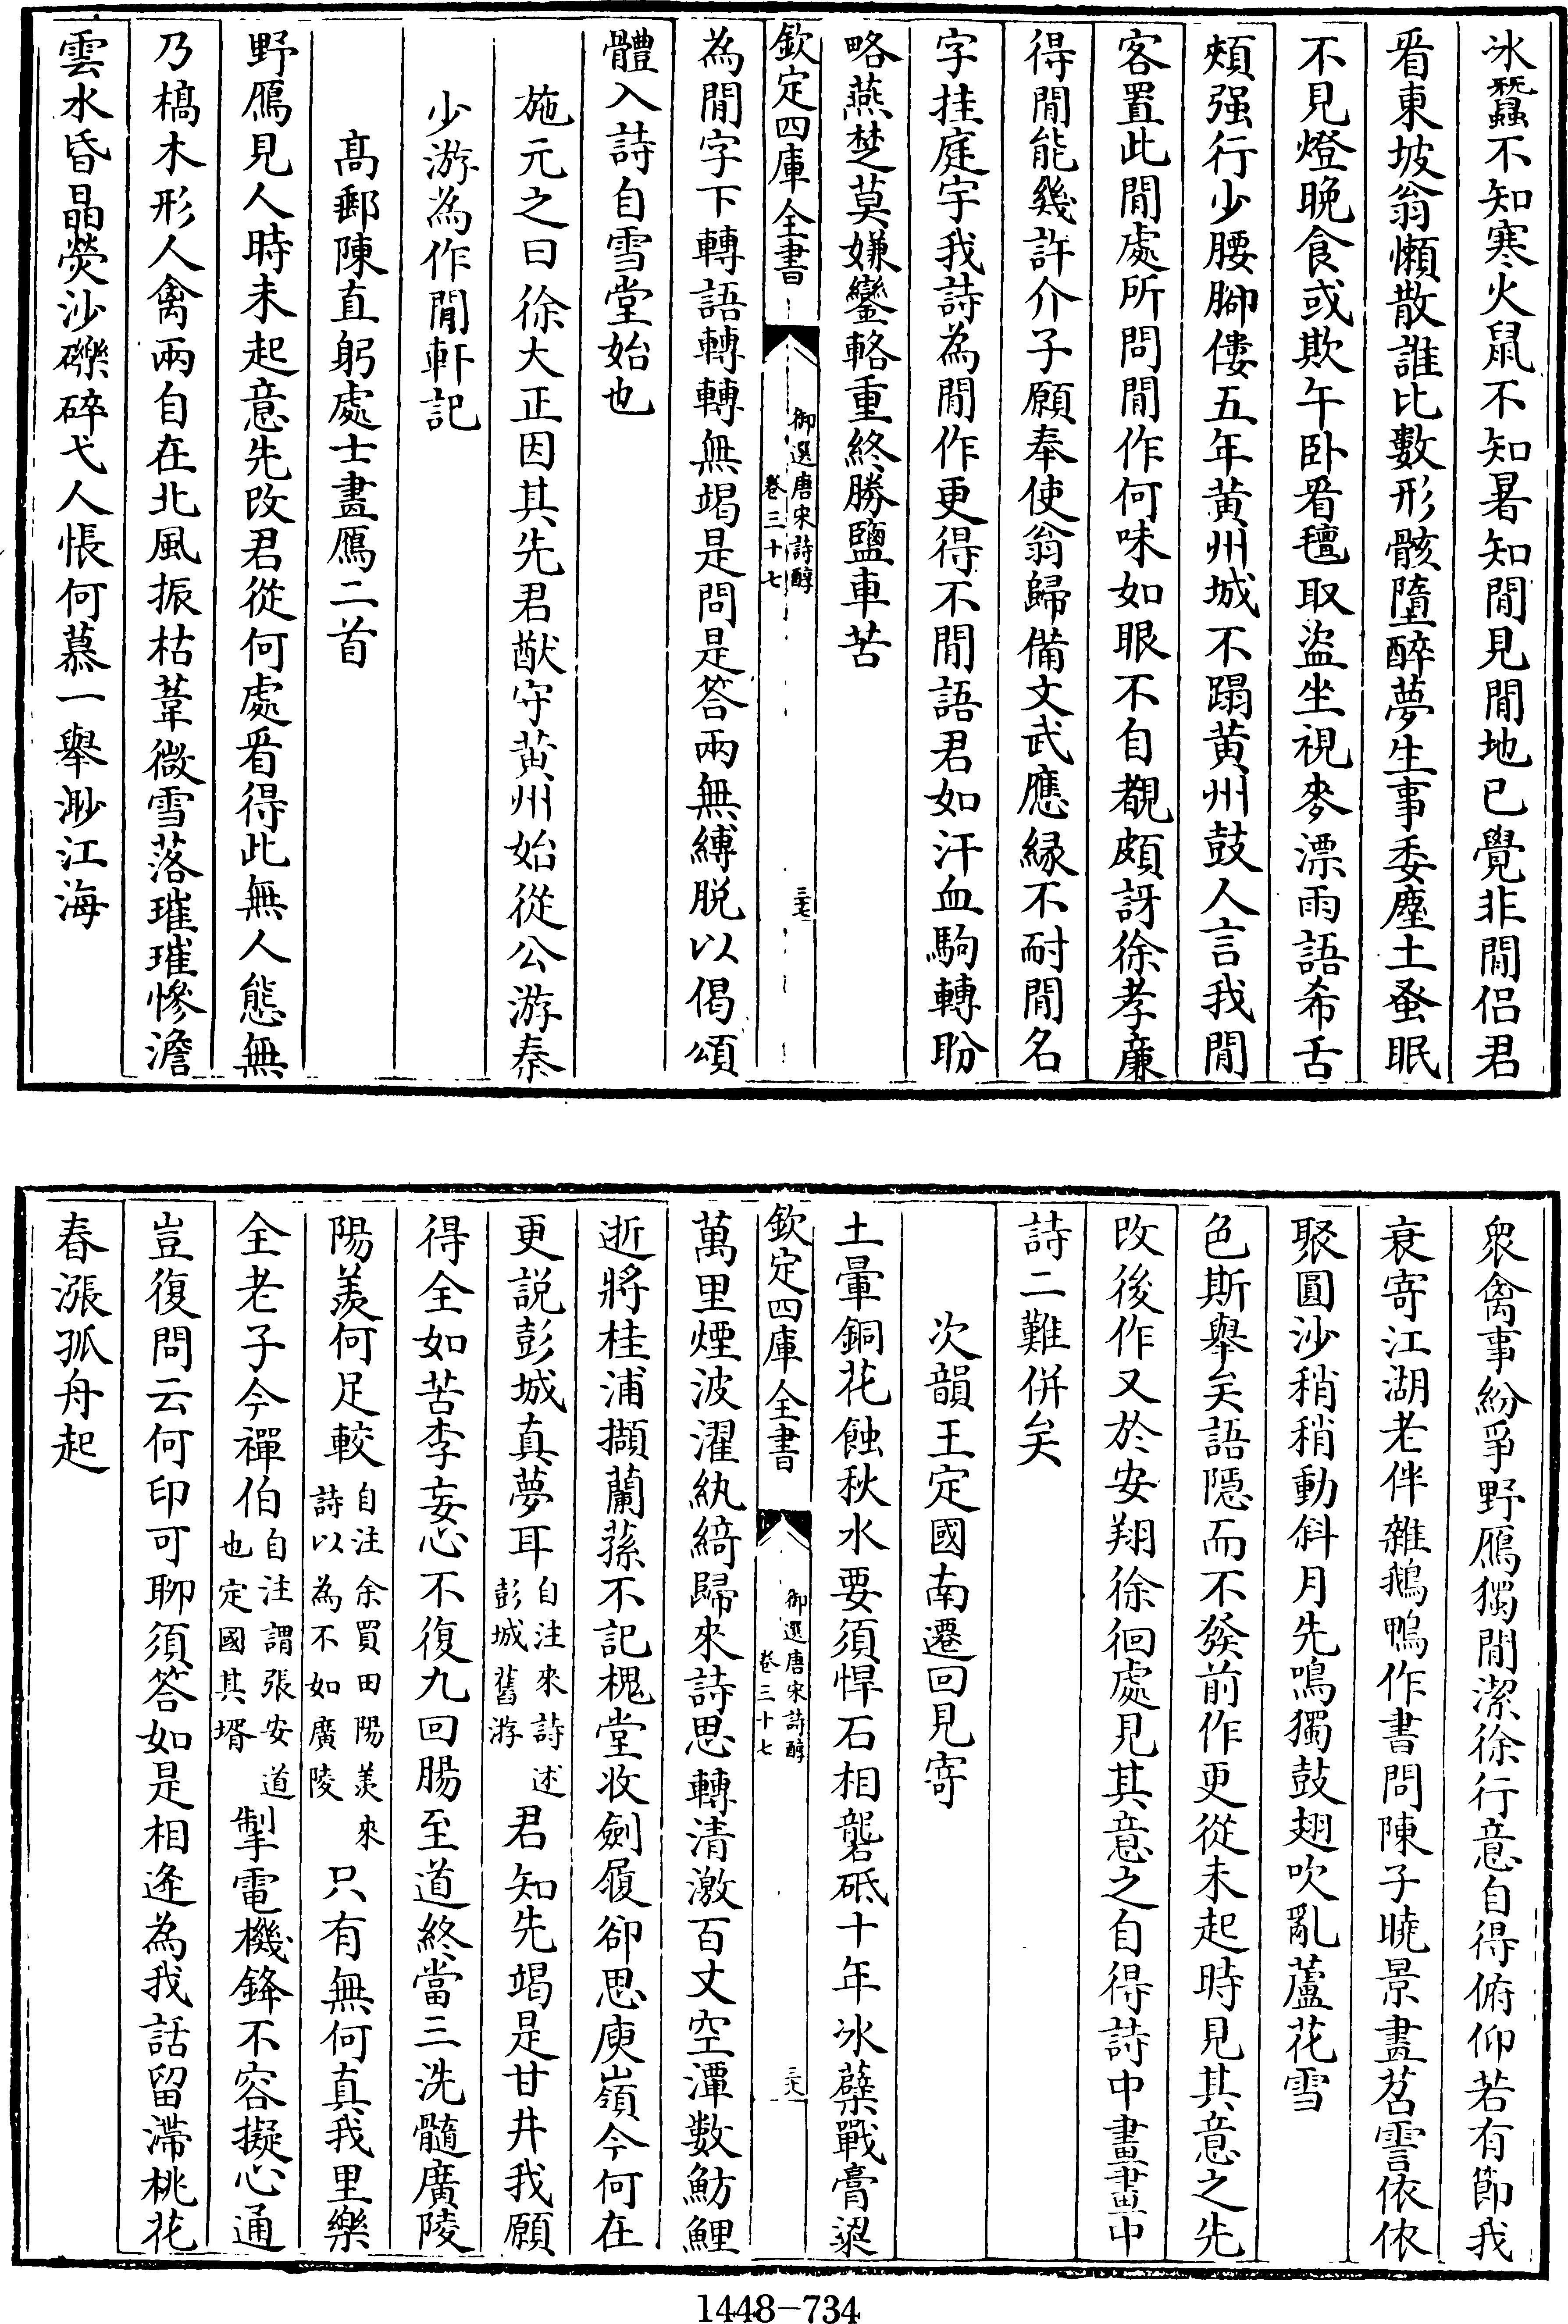 冰蠶不知寒火鼠不知暑知閒見閒地已覺非閒侶君
看東坡翁懶散誰比數形骸墮醉夢生事委塵土蚤眠
不見燈晚食或欺午卧看氊取盜坐視麥漂雨語希舌
頰强行少腰脚僂五年黄州城不蹋黄州鼓人言我閒
客置此閒處所問閒作何味如眼不自覩頗訝徐孝廉
得閒能幾許介子願奉使翁歸備文武應緣不耐閒名
字挂庭宇我詩為閒作更得不閒語君如汗血駒轉盼
略燕楚莫嫌鑾輅重終勝鹽車苦
欽定四庫全書
御選唐宋詩醇
卷三十七
三七
為閒字下轉語轉轉無竭是問是答兩無縛脱以偈頌
體入詩自雪堂始也
施元之曰徐大正因其先君猷守黄州始從公游秦
少游為作閒軒記
髙郵陳直躬處士畫鴈二首
野鴈見人時未起意先改君從何處看得此無人態無
乃槁木形人禽兩自在北風振枯葦微雪落璀璀慘澹
雲水昏晶熒沙礫碎弋人悵何慕一舉渺江海
衆禽事紛爭野鴈獨閒潔徐行意自得俯仰若有節我
衰寄江湖老伴雜鵝鴨作書問陳子曉景畫苕霅依依
聚圓沙稍稍動斜月先鳴獨鼓翅吹亂蘆花雪
色斯舉矣語隠而不發前作更從未起時見其意之先
改後作又於安翔徐徊處見其意之自得詩中畫畫中
詩二難併矣
次韻王定國南遷回見寄
土暈銅花蝕秋水要須悍石相礱砥十年冰蘗戰膏粱
欽定四庫全書
御選唐宋詩醇
卷三十七
三八
萬里煙波濯紈綺歸來詩思轉清激百丈空潭數魴鯉
逝將桂浦擷蘭蓀不記槐堂收劍履卻思庾嶺今何在
更説彭城真夢耳自注來詩述彭城舊游君知先竭是甘井我願
得全如苦李妄心不復九回腸至道終當三洗髓廣陵
陽羨何足較自注余買田陽羨來詩以為不如廣陵只有無何真我里樂
全老子今禪伯自注謂張安道也定國其壻掣電機鋒不容擬心通
豈復問云何印可聊須答如是相逢為我話留滯桃花
春漲孤舟起
1448-734